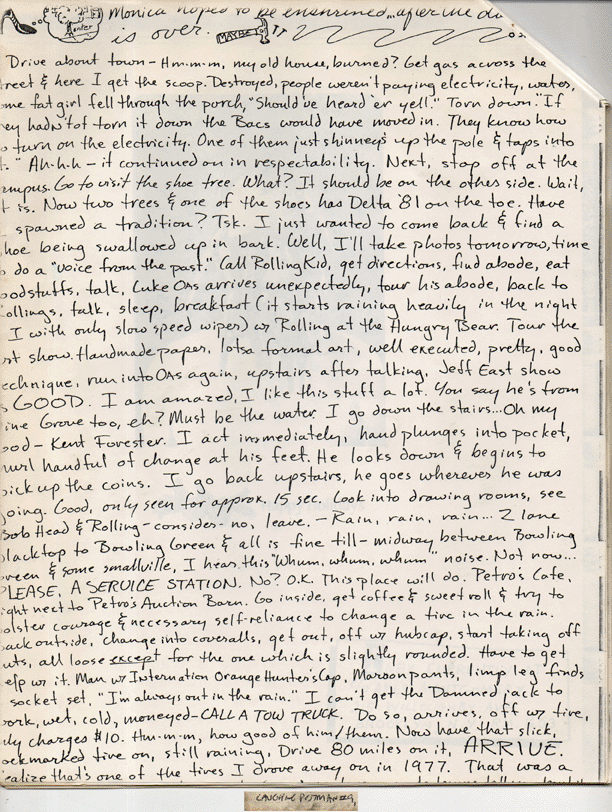 Monica hoped to be enshrined...after the du
is over. MAYBE!
Drive about town – Hm-m-m, my old house, burned? Get gas across the
reet & here I get the scoop. Destroyed, people weren't paying electricity, water,
ome fat girl fell through the porch, "Should've heard 'er yell." Torn down. "If
ey hadn't of torn it down the Bacs would have moved in. They know how
o turn on the electricity. One of them just shinney's up the pole & taps into
t." Ah-h-h – it continued on in respectability. Next, stop off at the
ampus. Go to visit the shoe tree. What? It should be on the other side. Wait,
t is. Now two trees & one of the shoes has Delta '81 on the toe. Have
spawned a tradition? Tsk. I just wanted to come back & find a
hoe being swallowed up in bark. Well, I'll take photos tomorrow, time
o do a "voice from the past." Call Rolling Kid, get directions, find abode, eat
oodstuffs, talk, Luke OAs arrives unexpectedly, tour his abode, back to
ollings, talk, sleep, breakfast (it starts raining heavily in the night
I with only slow speed wipers) w/ Rolling at the Hungry Bear. Tour the
rt show. Handmade paper, lotsa formal art, well executed, pretty, good
echnique, run into OAs again, upstairs after talking, Jeff East show
s GOOD. I am amazed, I like this stuff a lot. You say he's from
ine Grove too, eh? Must be the water. I go down the stairs...Oh my
ood – Kent Forester. I act immediately, hand plunges into pocket,
hurl handful of change at his feet. He looks down & begins to
pick up the coins. I go back upstairs, he goes wherever he was
going. Good, only seen for approx. 15 sec. Look into drawing rooms, see
Bob Head & Rolling – consider – no, leave. – Rain, rain, rain... 2 lane
blacktop to Bowling Green & all is fine till – midway between Bowling
reen & some smallville, I hear this "Whum, whum, whum" noise. Not now...
LEASE, A SERVICE STATION. No? O.K. This place will do. Petro's Cafe,
ight next to Petro's Auction Barn. Go inside, get coffee & sweet roll & try to
olster courage & necessary self-reliance to change a tire in the rain
ack outside, change into coveralls, get out, off w/ hubcap, start taking off
uts, all loose except for the one which is slightly rounded. Have to get
elp w/ it. Man w/ Internation Orange Hunter's Cap, Maroon pants, limp leg finds
socket set, "I'm always out in the rain." I can't get the Damned jack to
ork, wet, cold, moneyed – CALL A TOW TRUCK. Do so, arrives, off w/ tire,
nly charges $10. Hm-m-m, how good of him/them. Now have that slick,
ockmarked tire on, still raining, Drive 80 miles on it, ARRIVE.
ealize that's one of the tires I drove away on in 1977. That was a